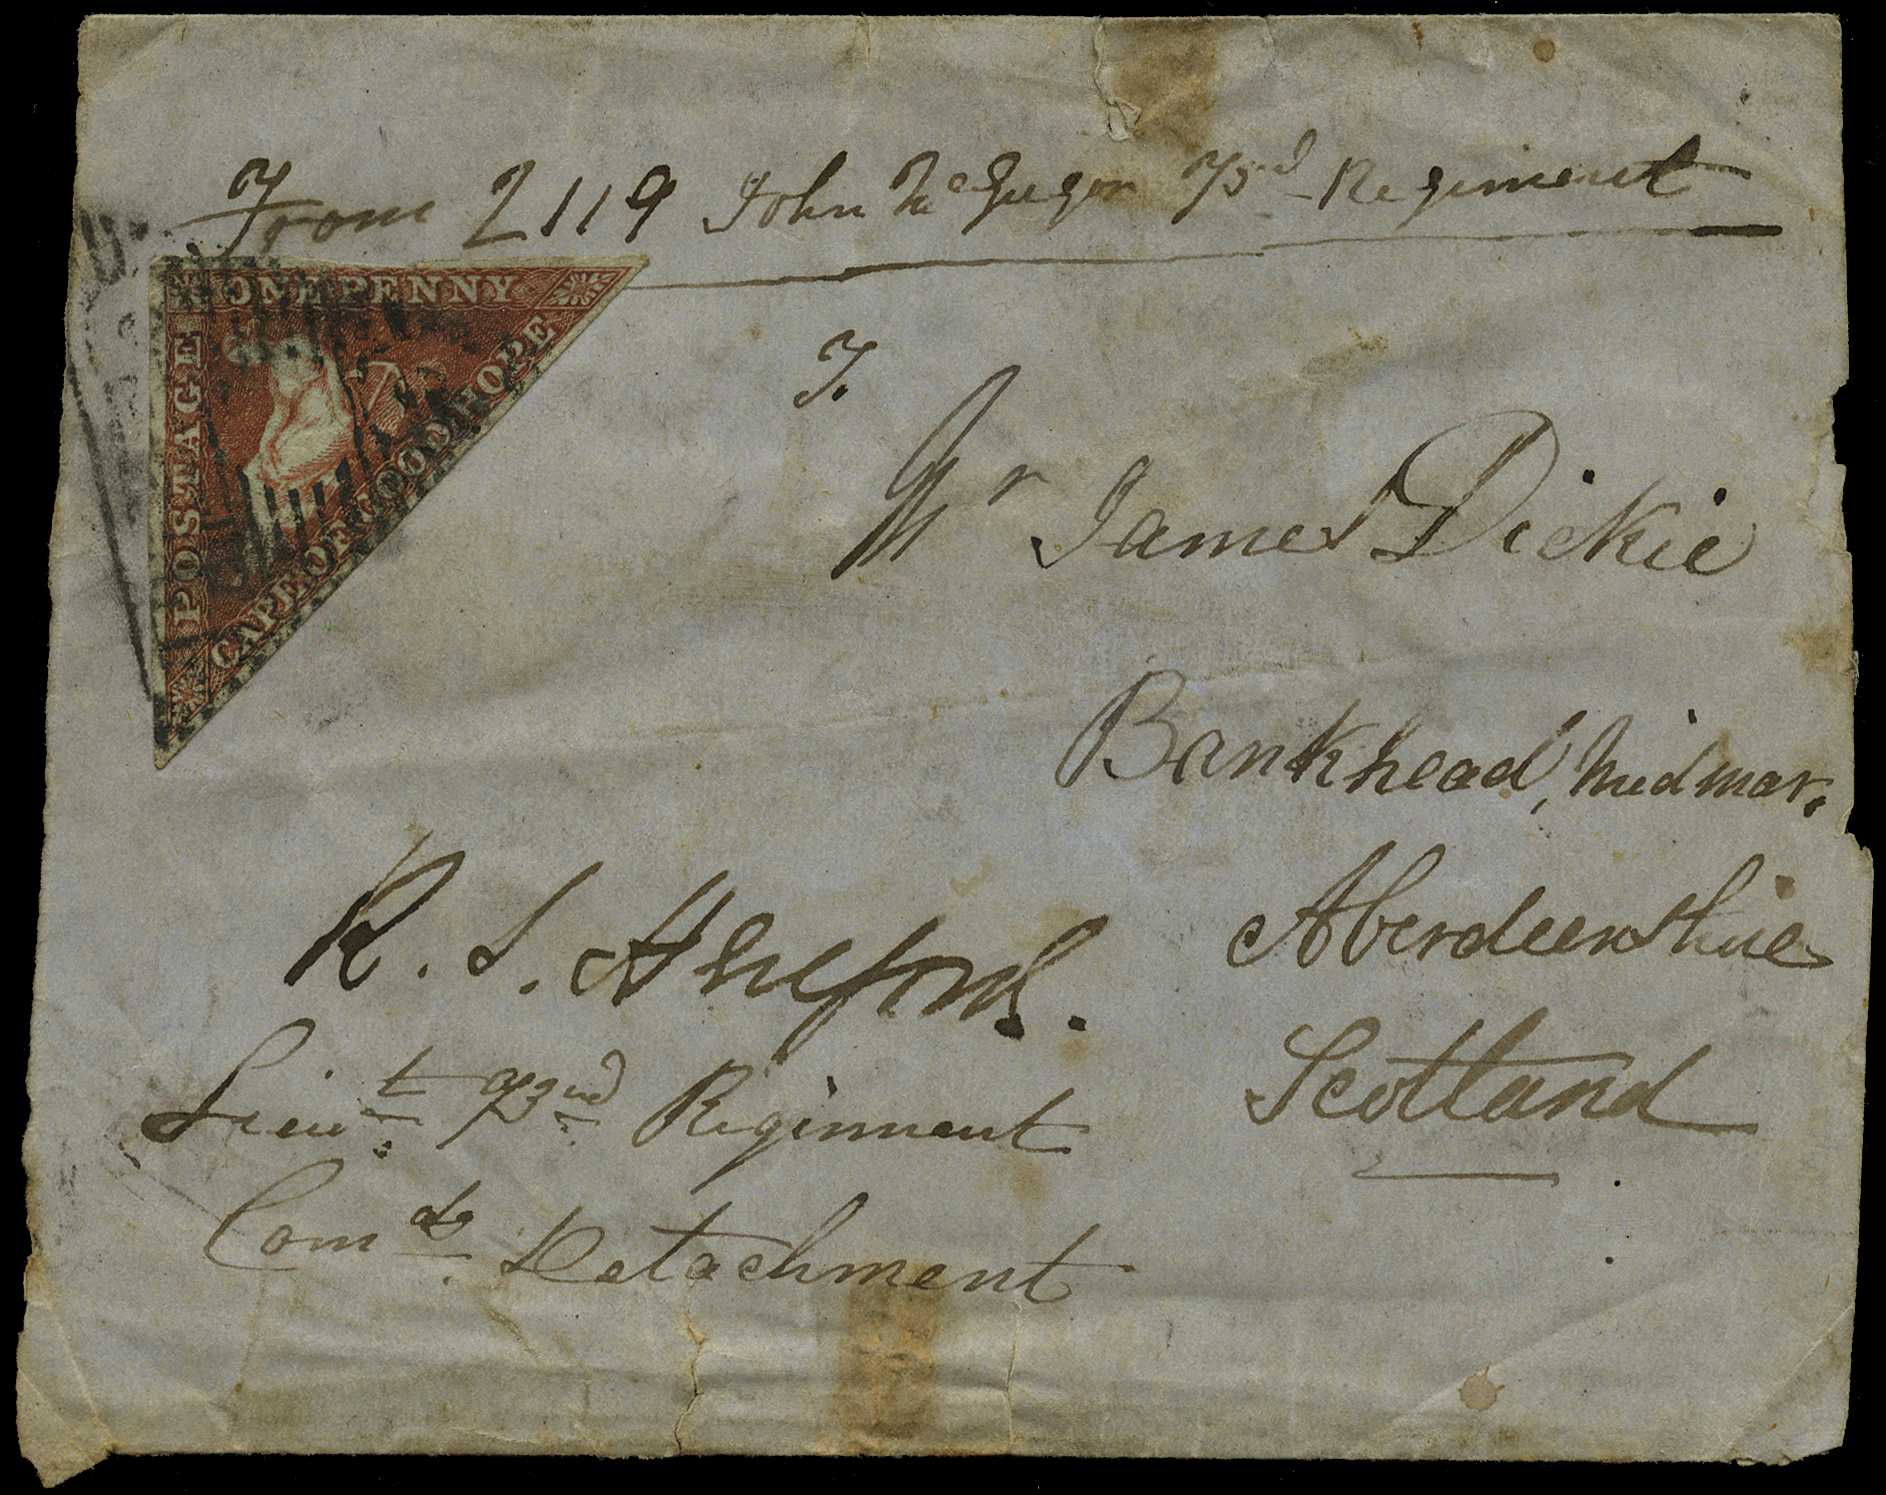 From 2119 John McGregor 73rd Regiment
ONE PENNY
POSTAGE
CAPE OF GOOD HOPE
T.
Mr James Dickie
Bankhead, Midmar.
Aberdeenshire
Scotland
R. S.
Lieut. 73rd Regiment
Comdg Detachment